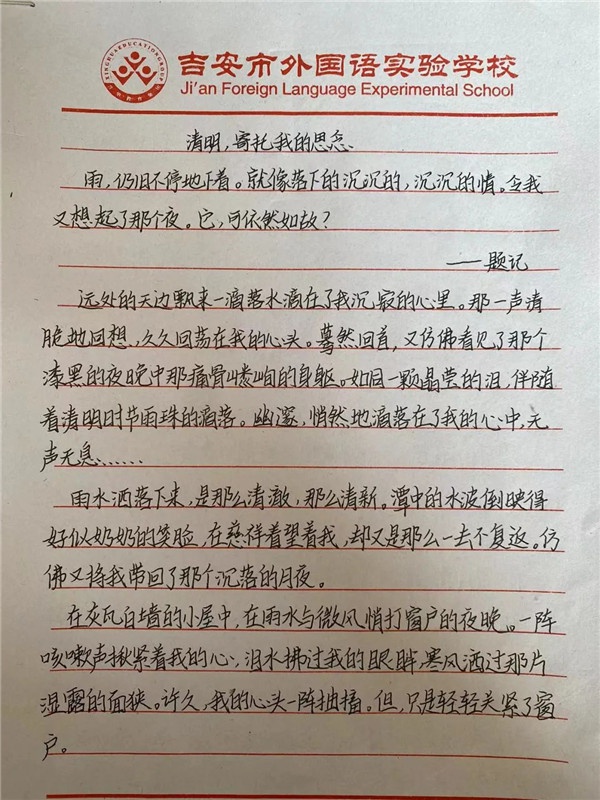 XINGHUAEDUCATIONGROUP
吉安市外国语实验学校
Ji'an Foreign Language Experimental School
清明,寄托我的思念
雨,仍旧不停地下着。就像落下的沉沉的,沉沉的情。令我
又想起了那个夜。它,可依然如故?
——题记
远处的天边飘来一滴落水滴在了我沉寂的心里。那一声清
脆地回想,久久回荡在我的心头。蓦然回首,又仿佛看见了那个
漆黑的夜晚中那痛骨嶙峋的身躯。如同一颗晶莹的泪,伴随
着清明时节雨珠的滴落。幽邃,悄然地滴落在了我的心中,无
声无息……
雨水洒落下来,是那么清澈,那么清新。潭中的水波倒映得
好似奶奶的笑脸,在慈祥着望着我,却又是那么一去不复返。仿
佛又将我带回了那个沉落的月夜。
在灰瓦白墙的小屋中,在雨水与微风悄打窗户的夜晚。一阵
咳嗽声揪紧着我的心,泪水拂过我的眼眸,寒风洒过那片
湿露的面狭。许久,我的心头一阵抽搐。但,只是轻轻关紧了窗
户。